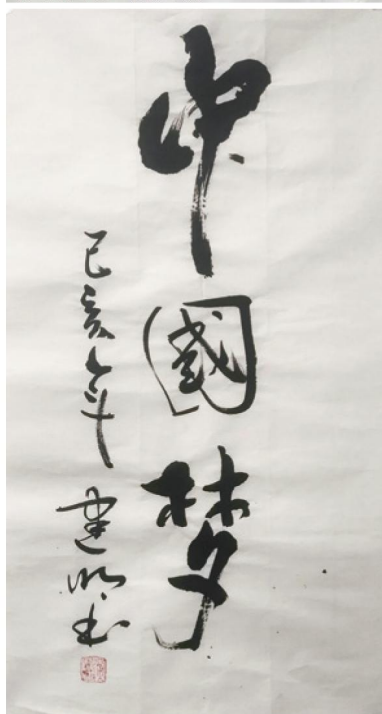 中國梦
己亥年
建明书